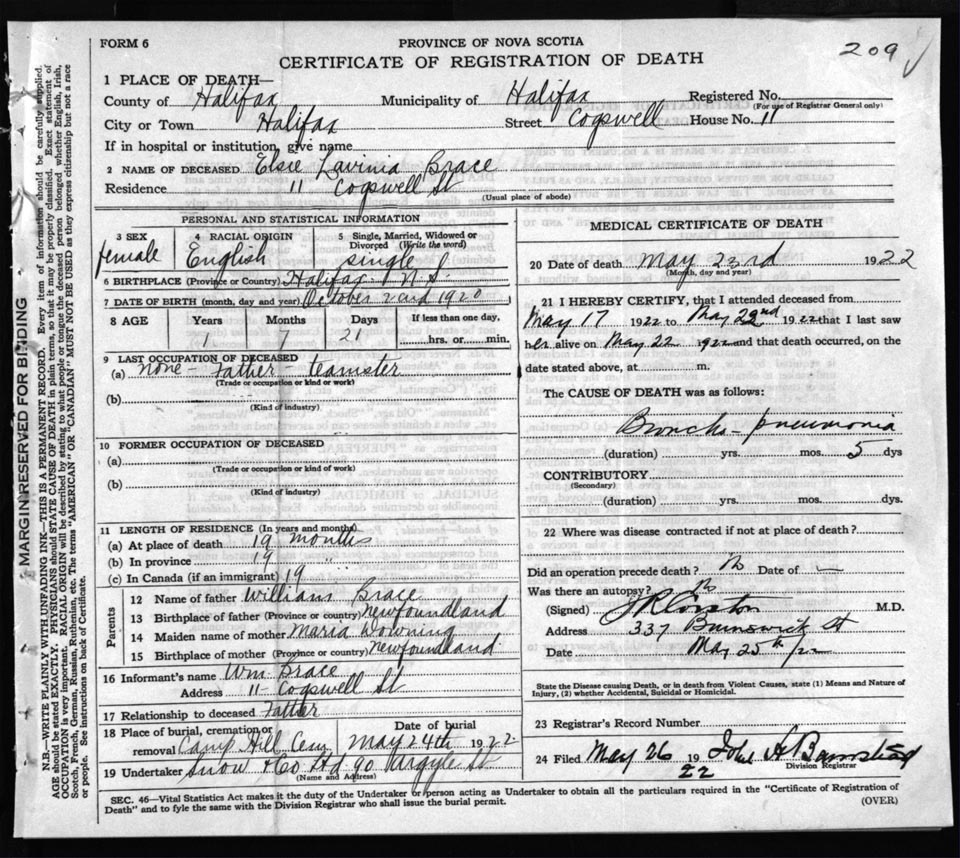 FORM 6
PROVINCE OF NOVA SCOTIA
209
CERTIFICATE OF REGISTRATION OF DEATH
1 PLACE OF DEATH—
County of Halifax Municipality of Halifax Registered No.
(For use of Registrar General only)
City or Town Halifax Street Cogswell House No. 11
If in hospital or institution, give name
2 NAME OF DECEASED Elsie Lavinia Brace
Residence 11 Cogswell St
(Usual place of abode)
PERSONAL AND STATISTICAL INFORMATION
3 SEX female
4 RACIAL ORIGIN English
5 Single, Married, Widowed or Divorced (Write the word) single
6 BIRTHPLACE (Province or Country) Halifax N.S.
7 DATE OF BIRTH (month, day and year) October 2nd 1920
8 AGE Years Months Days If less than one day,
1 7 21 hrs. or min.
9 LAST OCCUPATION OF DECEASED
(a) none - Father - teamster
(Trade or occupation or kind of work)
(b)
(Kind of industry)
10 FORMER OCCUPATION OF DECEASED
(a)
(Trade or occupation or kind of work)
(b)
(Kind of industry)
11 LENGTH OF RESIDENCE (In years and months)
(a) At place of death 19 months
(b) In province 19 "
(c) In Canada (if an immigrant) 19
Parents
12 Name of father William Brace
13 Birthplace of father (Province or country) Newfoundland
14 Maiden name of mother Maria Downing
15 Birthplace of mother (Province or country) Newfoundland
16 Informant's name Wm Brace
Address 11 - Cogswell St
17 Relationship to deceased Father
18 Place of burial, cremation or removal Camp Hill Cemy
Date of burial May 24th 1922
19 Undertaker Snow & Co Ltd 90 Argyle St
(Name and Address)
MEDICAL CERTIFICATE OF DEATH
20 Date of death May 23rd 1922
(Month, day and year)
21 I HEREBY CERTIFY, that I attended deceased from
May 17 1922 to May 22nd 1922 that I last saw
her alive on May 22 1922 and that death occurred, on the
date stated above, at m.
The CAUSE OF DEATH was as follows:
Broncho-pneumonia
(duration) yrs. mos. 5 dys
CONTRIBUTORY
(Secondary)
(duration) yrs. mos. dys.
22 Where was disease contracted if not at place of death?
Did an operation precede death? No Date of —
Was there an autopsy? No
(Signed) M.D.
Address 337 Brunswick St
Date May 25th/22
State the Disease causing Death, or in death from Violent Causes, state (1) Means and Nature of
Injury, (2) whether Accidental, Suicidal or Homicidal.
23 Registrar's Record Number
24 Filed May 26 1922 John A Barnstead
Division Registrar
SEC. 46—Vital Statistics Act makes it the duty of the Undertaker or person acting as Undertaker to obtain all the particulars required in the "Certificate of Registration of
Death" and to fyle the same with the Division Registrar who shall issue the burial permit.
(OVER)
MARGIN RESERVED FOR BINDING
N.B.—WRITE PLAINLY WITH UNFADING INK—THIS IS A PERMANENT RECORD. Every item of information should be carefully supplied.
AGE should be stated EXACTLY. PHYSICIANS should STATE CAUSE OF DEATH in plain terms, so that it may be properly classified. Exact statement of
OCCUPATION is very important. RACIAL ORIGIN will be described by stating to what people or tongue the deceased person belonged whether English, Irish,
Scotch, French, German, Russian, Ruthenian, etc. The terms "AMERICAN" OR "CANADIAN" MUST NOT BE USED as they express citizenship but not a race
or people. See instructions on back of Certificate.